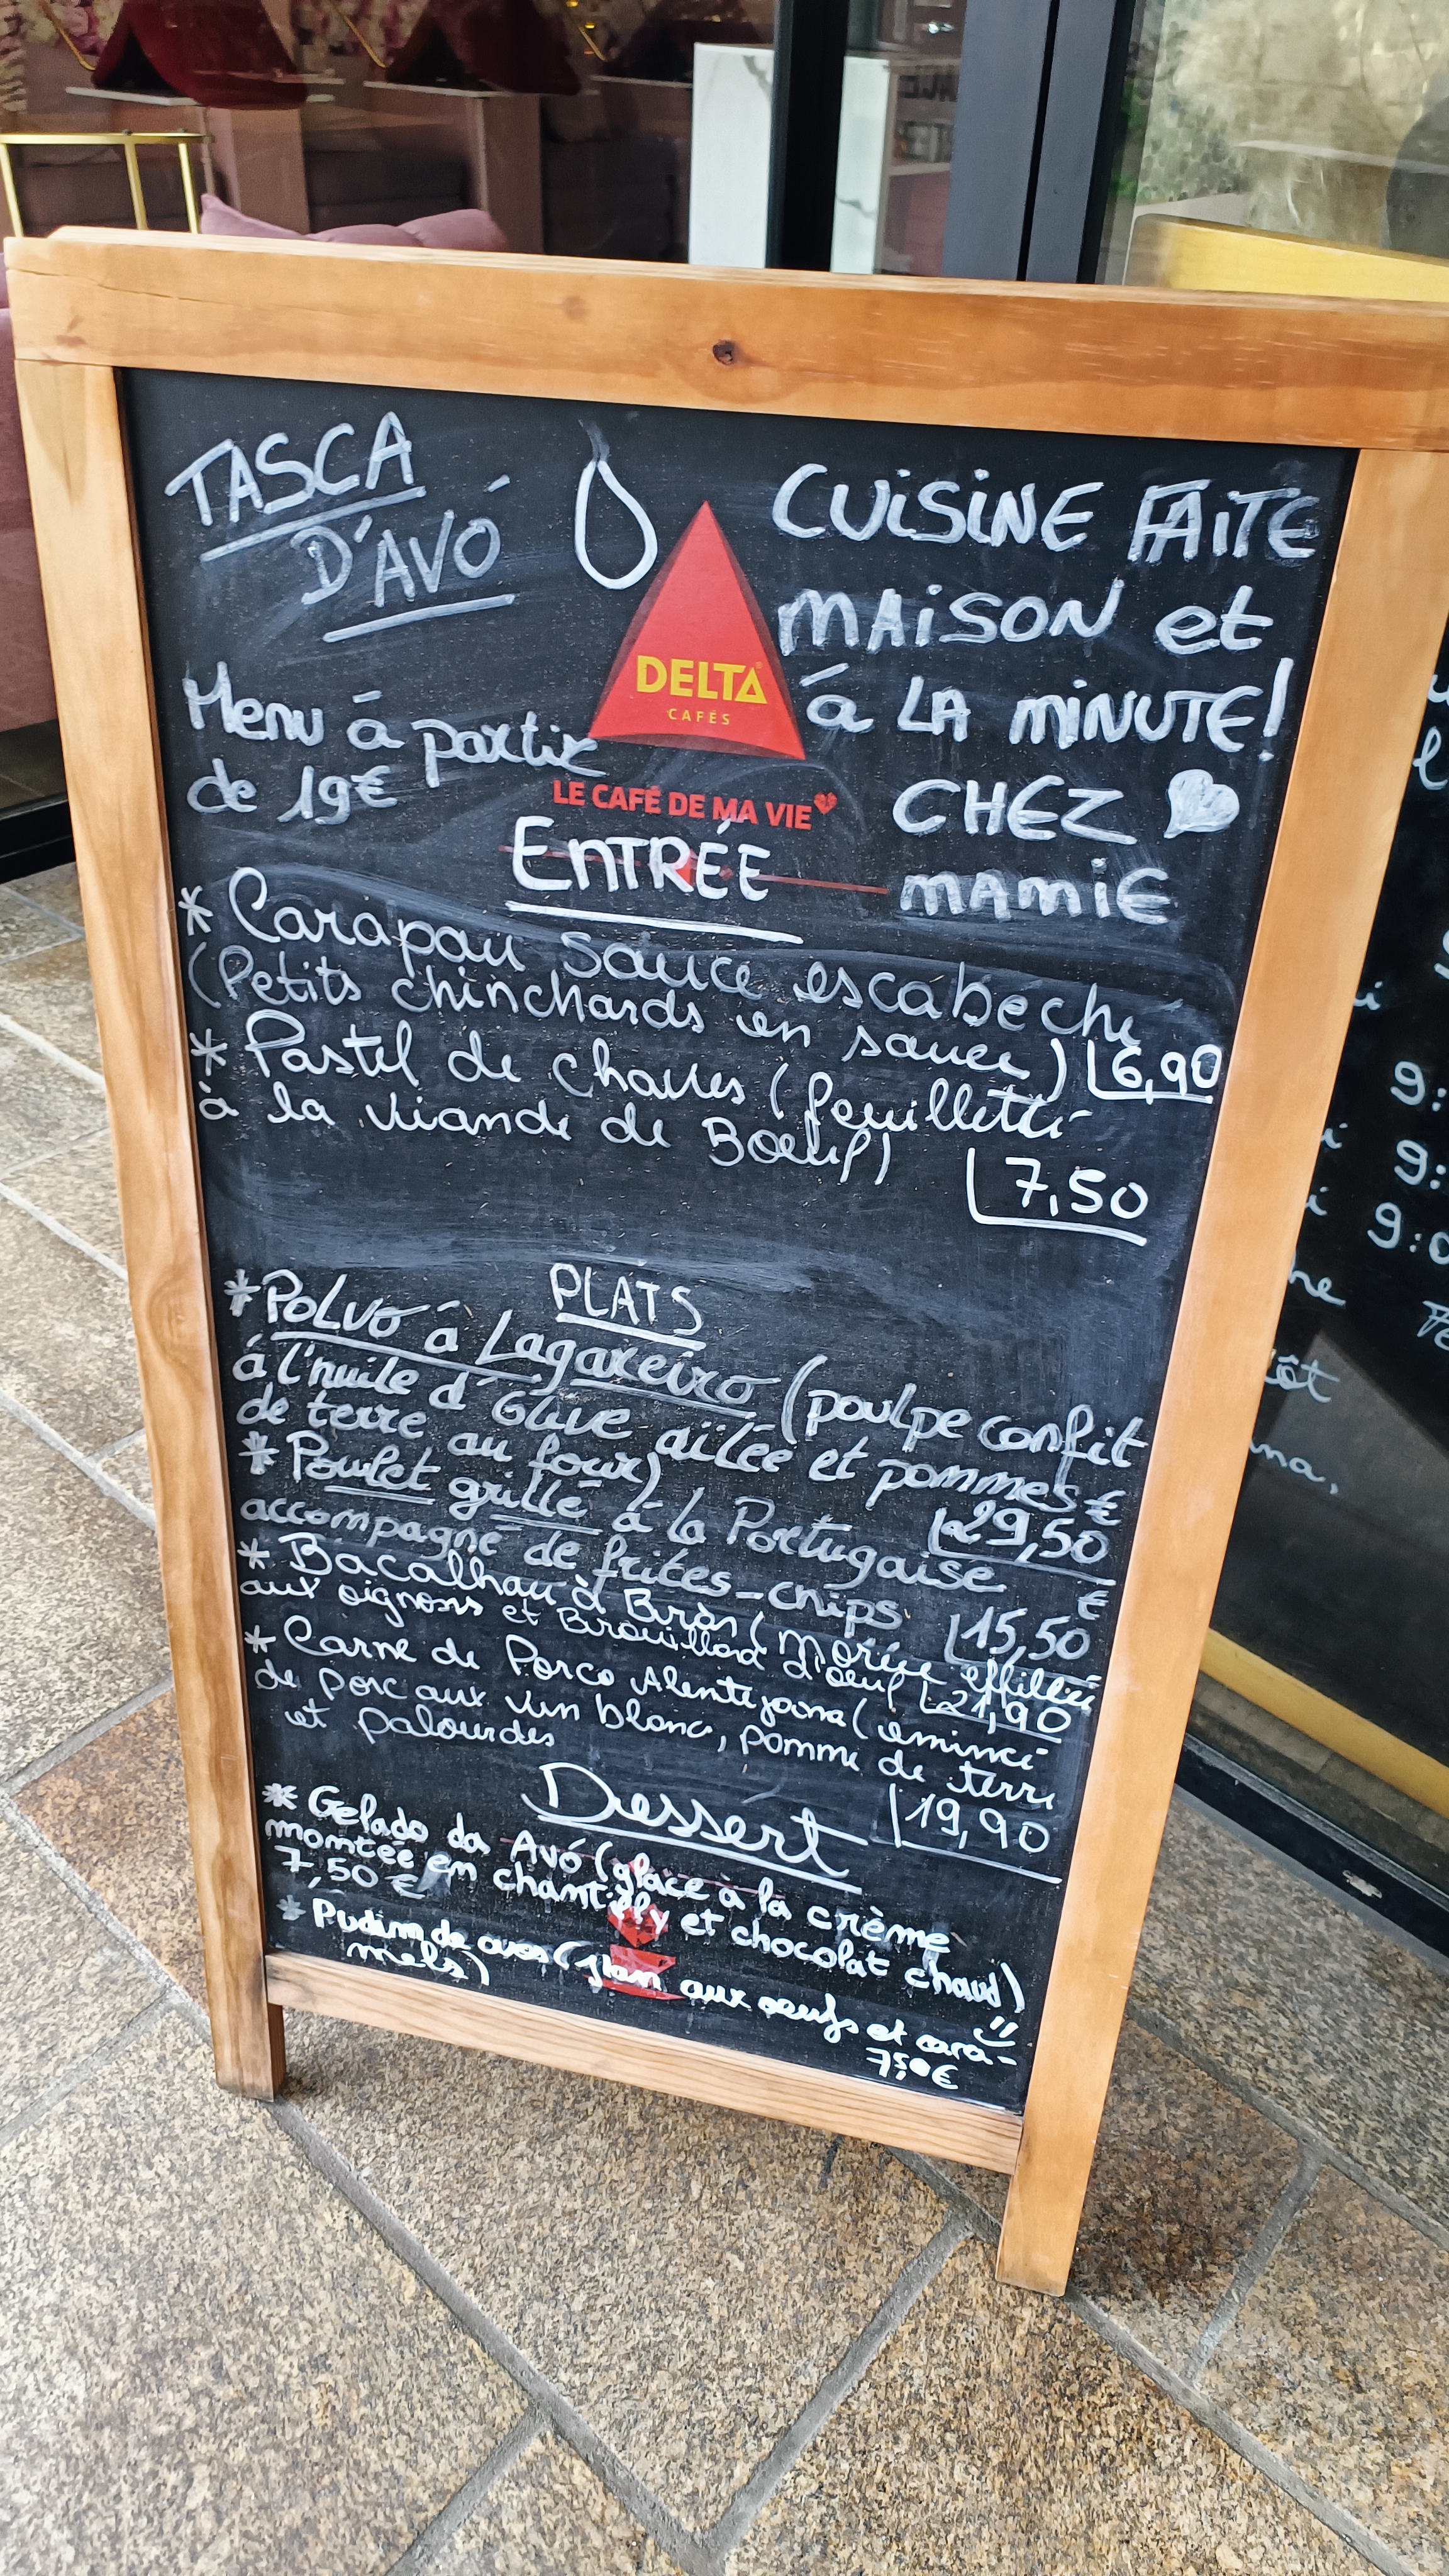 TASCA
D'AVÓ
CUiSiNE FAiTE
MAiSON et
á LA MiNUTE!
CHEZ
MAMIE
DELTA
CAFÉS
LE CAFÉ DE MA VIE
Menu á partir
de 19€
ENTRÉE
* Carapau sauce escabeche
(Petits chinchards en sauce) 6,90
* Pastel de chaves (feuilleté
à la viande de Boeuf)
7,50
PLATS
* POLVO á Lagareiro (poulpe confit
á l'huile d'Olive aïlée et pommes
de terre au four) 29,50 €
* Poulet grillé á la Portugaise
accompagné de frites-chips 15,50 €
* Bacalhau à Bràs (morue effilée
aux oignons et Brouillad d'oeuf 21,90
* Carne de Porco Alentejana (émincé
de porc aux vin blanc, pomme de terre
et palourdes
19,90
Dessert
* Gelado da Avó (glace à la crème
montée en chantilly et chocolat chaud)
7,50 €
* Pudim de ovos (flan aux oeufs et cara-
mels)
7,50€
9:
9:
9:0